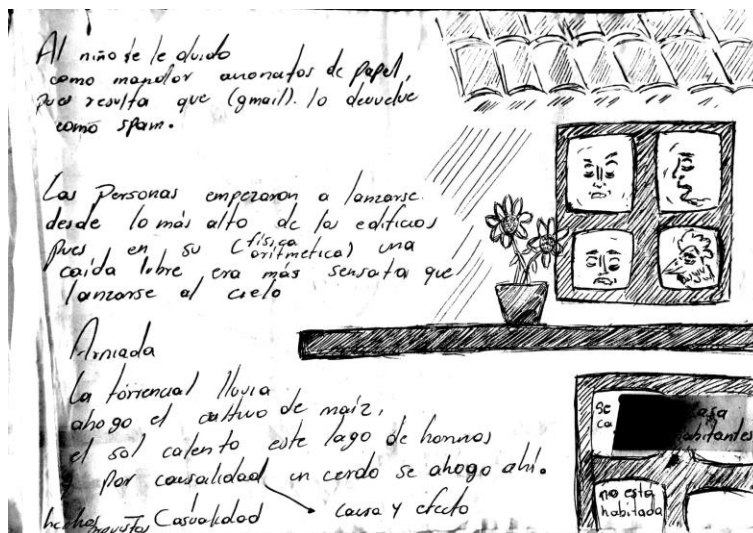 Al niño se le olvido
como mandar avioncitos de papel,
pues resulta que (gmail). lo devuelve
como spam.
Las Personas empezaron a lanzarse
desde lo más alto de los edificios
pues en su (física aritmetica) una
caída libre era más sensata que
lanzarse al cielo
Armada
La torrencial lluvia
ahogo el cultivo de maíz,
el sol calento este lago de hornos
y por causalidad un cerdo se ahogo ahí.
hechos Casualidad causa y efecto
Se
ca
Casa
habitantes
no esta
habitada